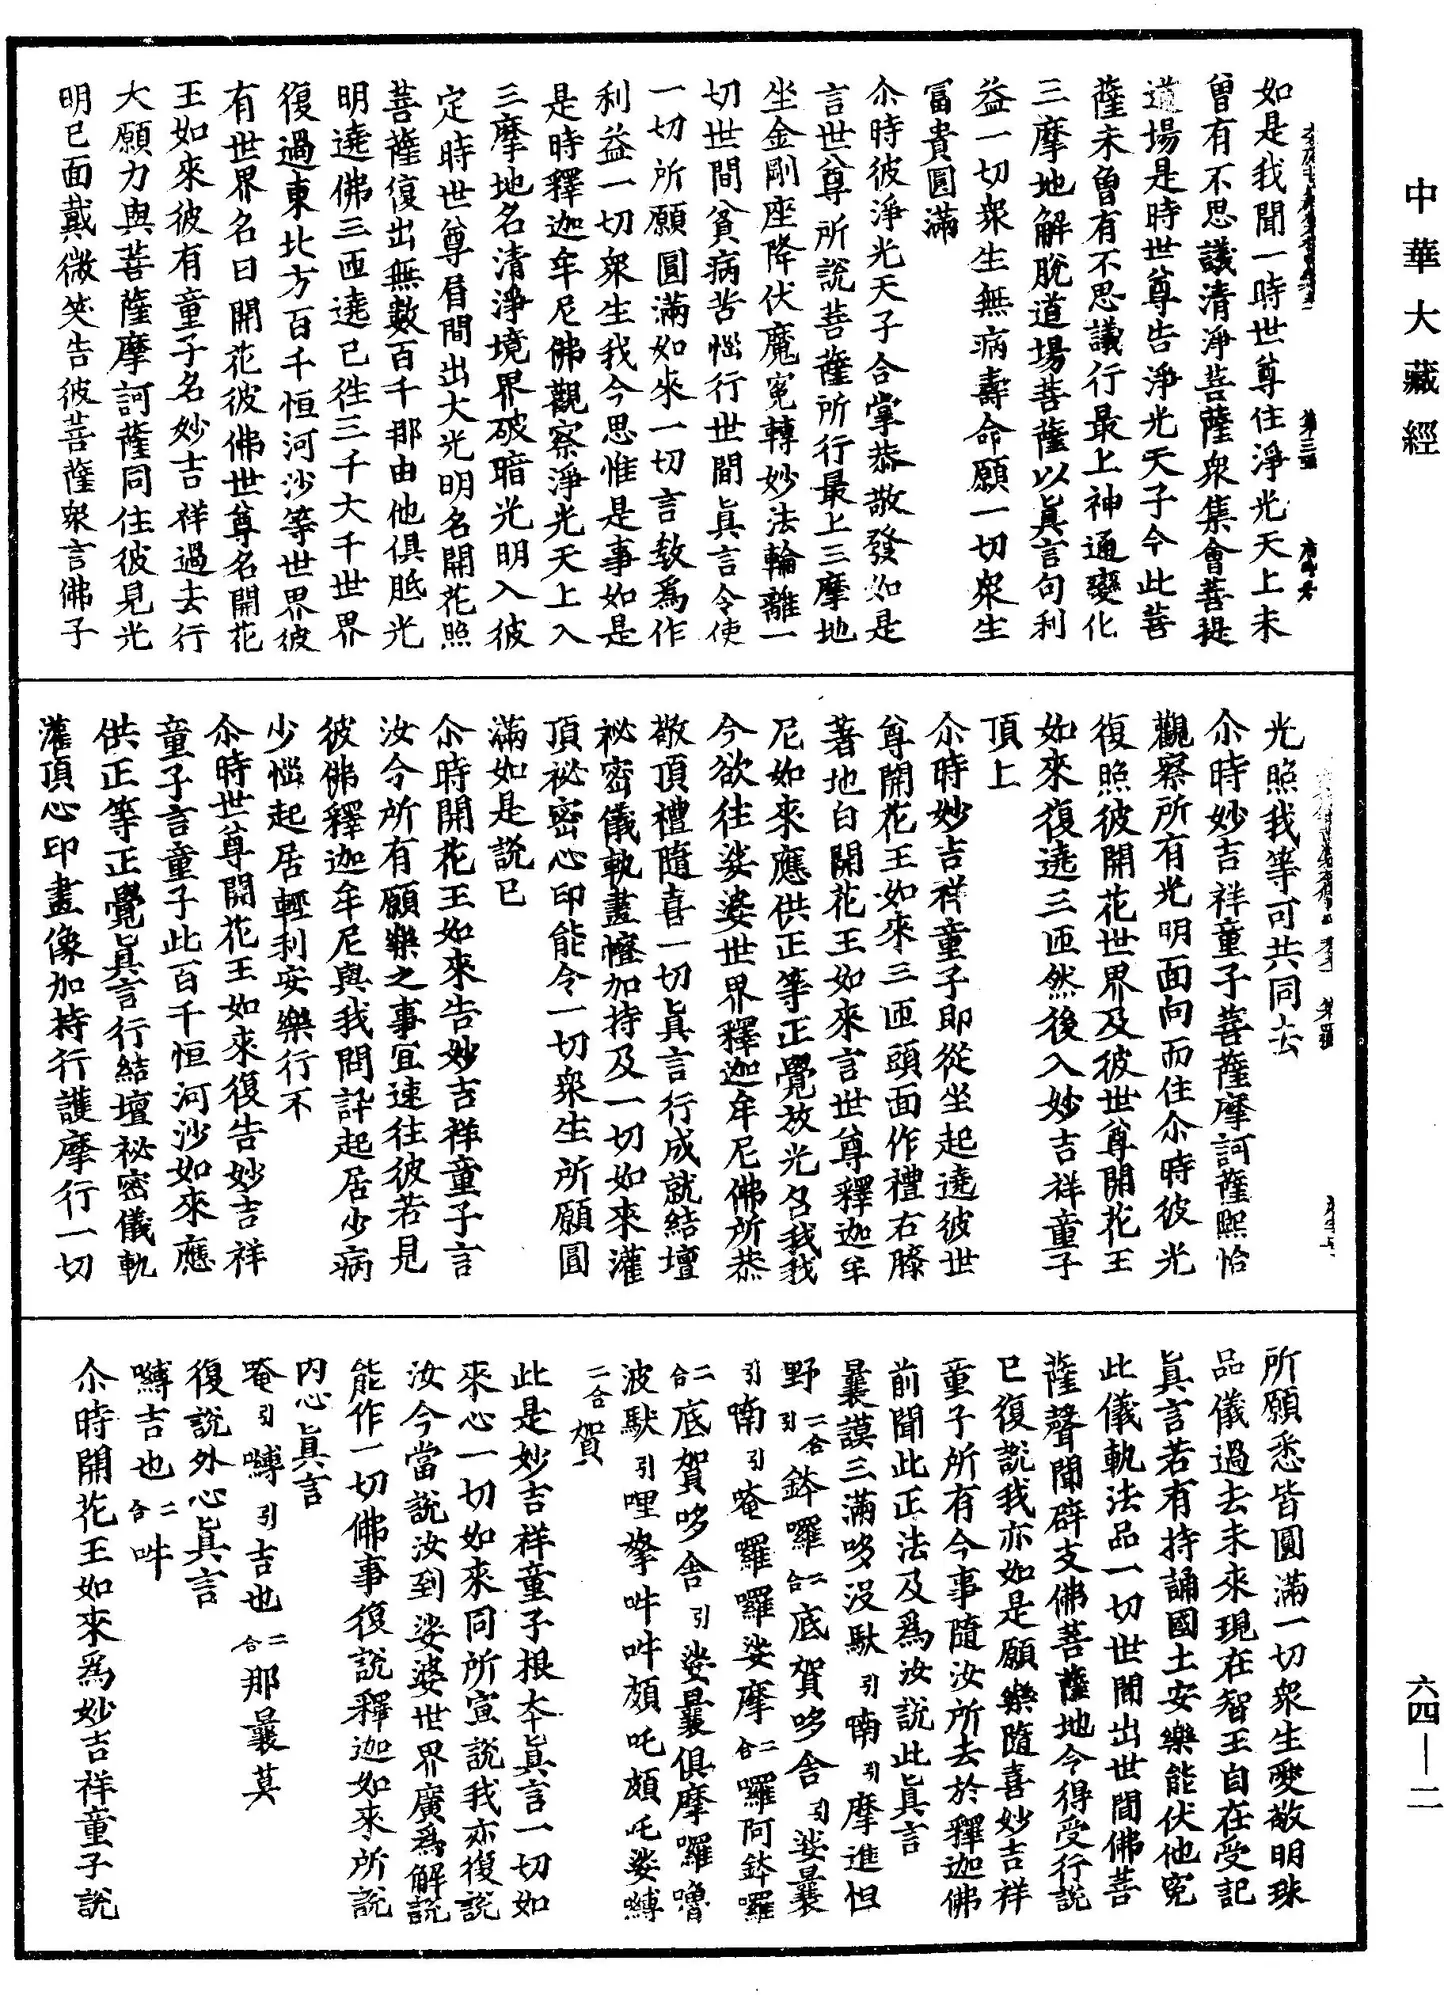 中華大藏經
如是我聞一時世尊住淨光天上未
曾有不思議清淨菩薩衆集會菩提
道場是時世尊告淨光天子今此菩
薩未曾有不思議行最上神通變化
三摩地解脫道場菩薩以眞言句利
益一切衆生無病壽命願一切衆生
冨貴圓滿
尒時彼淨光天子合掌恭敬發如是
言世尊所說菩薩所行最上三摩地
坐金剛座降伏魔寃轉妙法輪離一
切世間貧病苦惱行世間眞言令使
一切所願圓滿如來一切言教爲作
利益一切衆生我今思惟是事如是
是時釋迦牟尼佛觀察淨光天上入
三摩地名清淨境界破暗光明入彼
定時世尊眉間出大光明名開花照
菩薩復出無數百千那由他俱胝光
明遶佛三匝遶已徃三千大千世界
復過東北方百千恒河沙等世界彼
有世界名曰開花彼佛世尊名開花
王如來彼有童子名妙吉祥過去行
大願力與菩薩摩訶薩同住彼見光
明已面戴微笑告彼菩薩衆言佛子
光照我等可共同去
尒時妙吉祥童子菩薩摩訶薩熙怡
觀察所有光明面向而住尒時彼光
復照彼開花世界及彼世尊開花王
如來復遶三匝然後入妙吉祥童子
頂上
尒時妙吉祥童子即從坐起遶彼世
尊開花王如來三匝頭面作禮右膝
著地白開花王如來言世尊釋迦牟
尼如來應供正等正覺放光召我我
今欲往娑婆世界釋迦牟尼佛所恭
敬頂禮隨喜一切眞言行成就結壇
祕密儀軌畫㡧加持及一切如來灌
頂祕密心印能令一切衆生所願圓
滿如是說已
尒時開花王如來告妙吉祥童子言
汝今所有願樂之事宜速往彼若見
彼佛釋迦牟尼與我問訊起居少病
少惱起居輕利安樂行不
尒時世尊開花王如來復告妙吉祥
童子言童子此百千恒河沙如來應
供正等正覺眞言行結壇祕密儀軌
灌頂心印畫像加持行護摩行一切
所願悉皆圓滿一切衆生愛敬明珠
品儀過去未來現在智王自在受記
眞言若有持誦國土安樂能伏他寃
此儀軌法品一切世間出世間佛菩
薩聲聞辟支佛菩薩地今得受行說
已復說我亦如是願樂隨喜妙吉祥
童子所有今事隨汝所去於釋迦佛
前聞此正法及爲汝說此眞言
曩謨三滿哆沒馱引喃引摩進怛
野二合引鉢囉二合底賀哆舍引娑曩
引喃引唵囉囉娑摩二合囉阿鉢囉
二合底賀哆舍引娑曩俱摩囉嚕
波馱引哩拏吽吽頗吒頗吒娑嚩
二合賀
此是妙吉祥童子根本眞言一切如
來心一切如來同所宣說我亦復說
汝今當說汝到娑婆世界廣爲解說
能作一切佛事復說釋迦如來所說
内心眞言
唵引嚩引吉也二合那曩莫
復說外心眞言
嚩吉也二合吽
尒時開花王如來爲妙吉祥童子說
六四—二